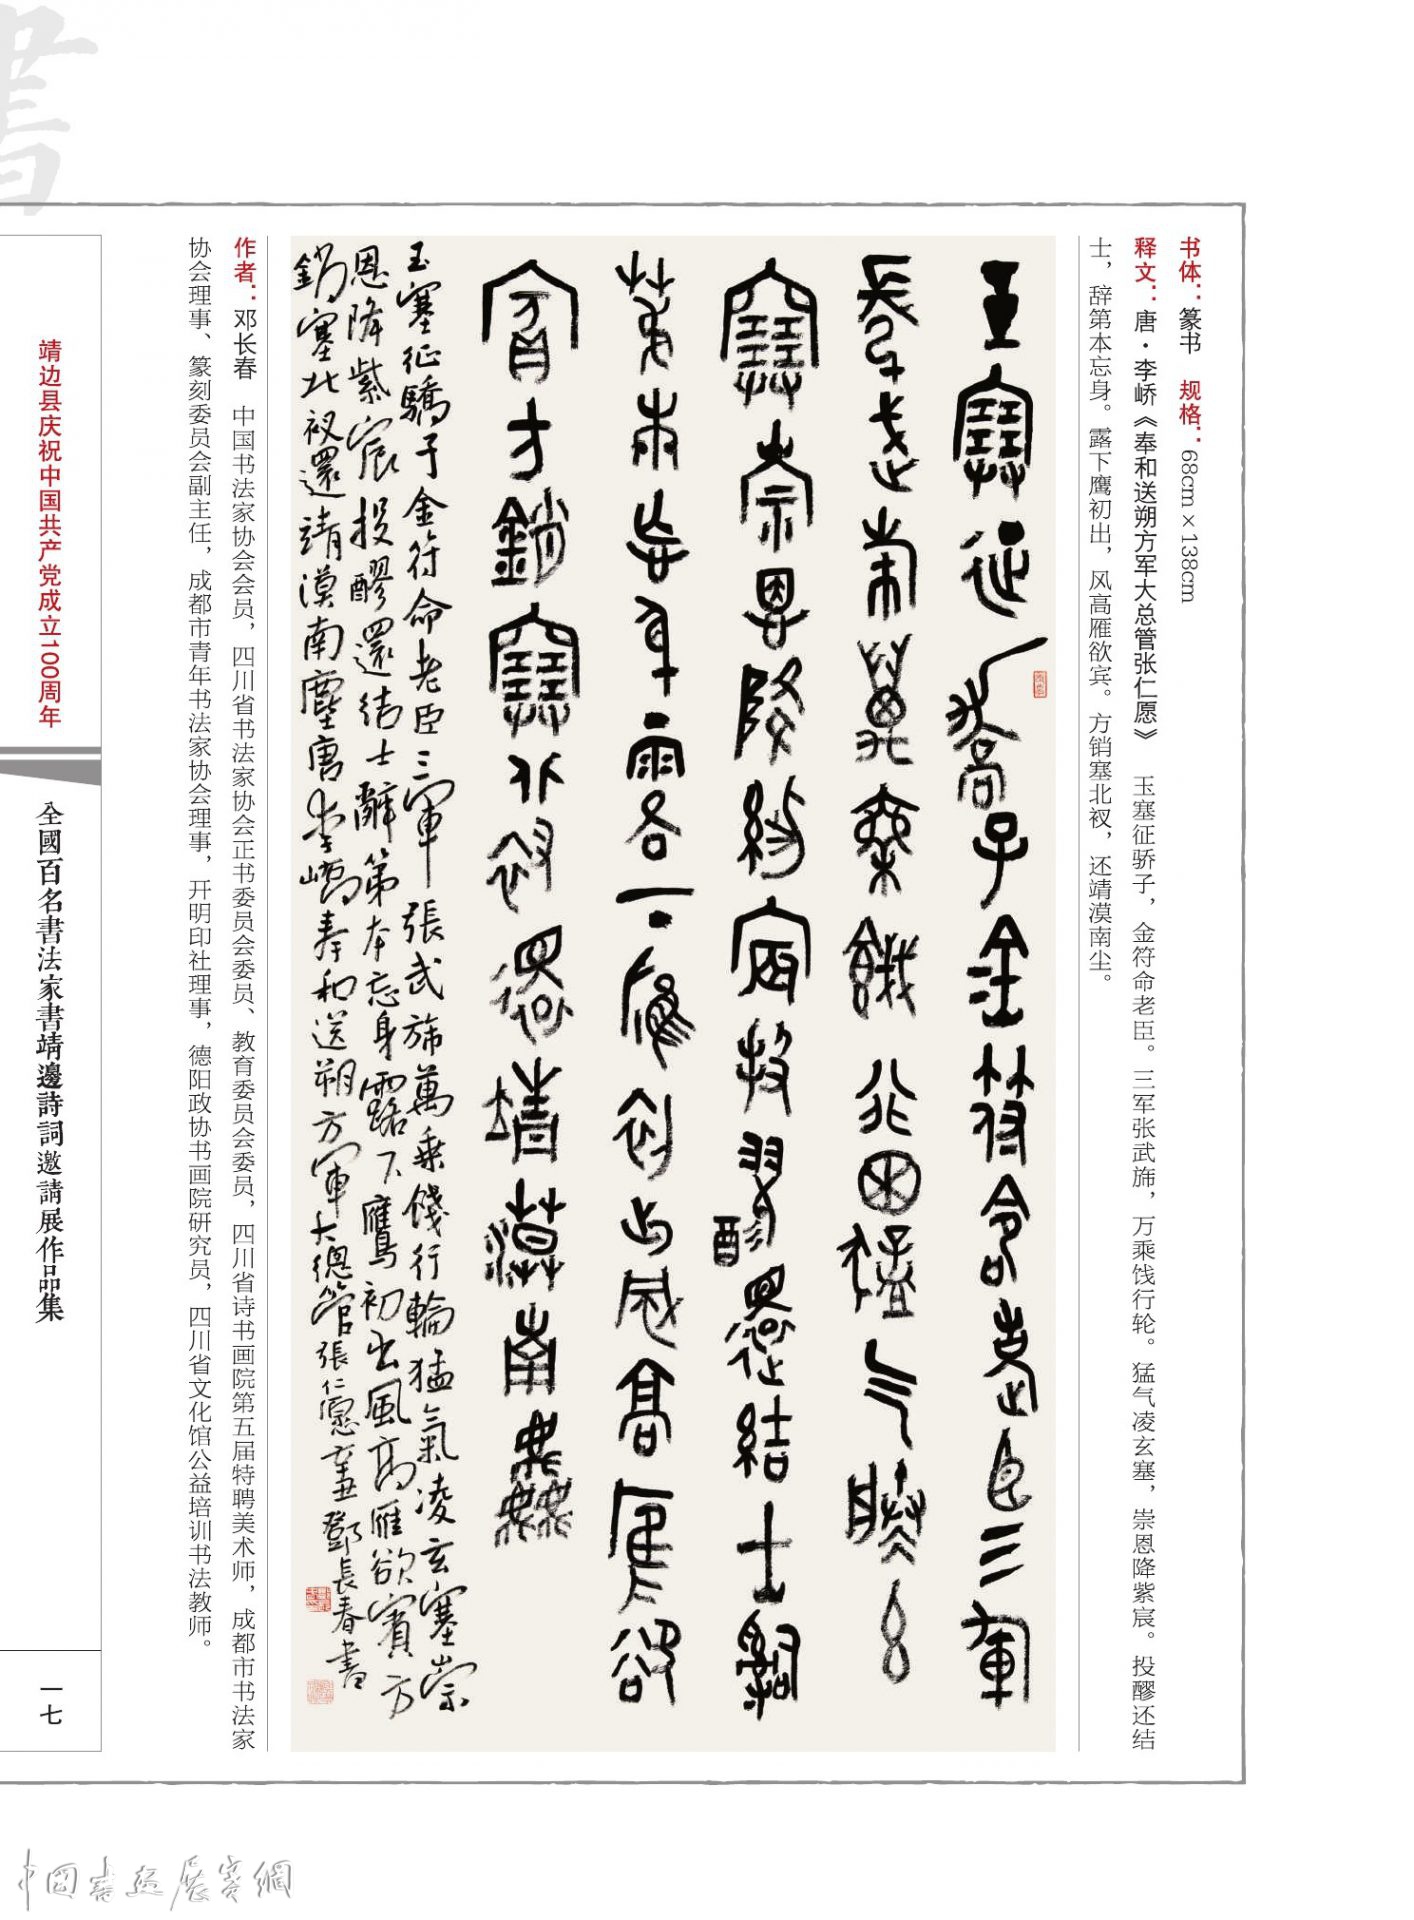 书体：篆书 规格：68cm×138cm
释文：唐·李峤《奉和送朔方军大总管张仁愿》 玉塞征骄子，金符命老臣。三军张武旆，万乘饯行轮。猛气凌玄塞，崇恩降紫宸。投醪还结
士，辞第本忘身。露下鹰初出，风高雁欲宾。方销塞北衩，还靖漠南尘。
玉塞征驕子金符命老臣三軍
張武旆萬乘餞行輪猛气陵玄
塞崇恩降紫宸投醪還結士辭
第本忘身露下鷹初出風高雁欲
賓方銷塞北衩還靖漠南塵
玉塞征驕子金符命老臣三軍張武旆萬乘餞行輪猛氣凌玄塞崇
恩降紫宸投醪還結士辭第本忘身露下鷹初出風高雁欲賓方
銷塞北衩還靖漠南塵唐李嶠奉和送朔方軍大總管張仁愿辛丑鄧長春書
作者：邓长春 中国书法家协会会员，四川省书法家协会正书委员会委员、教育委员会委员，四川省诗书画院第五届特聘美术师，成都市书法家
协会理事、篆刻委员会副主任，成都市青年书法家协会理事，开明印社理事，德阳政协书画院研究员，四川省文化馆公益培训书法教师。
靖边县庆祝中国共产党成立100周年
全國百名書法家書靖邊詩詞邀請展作品集
一七
書
中國書畫展賽網